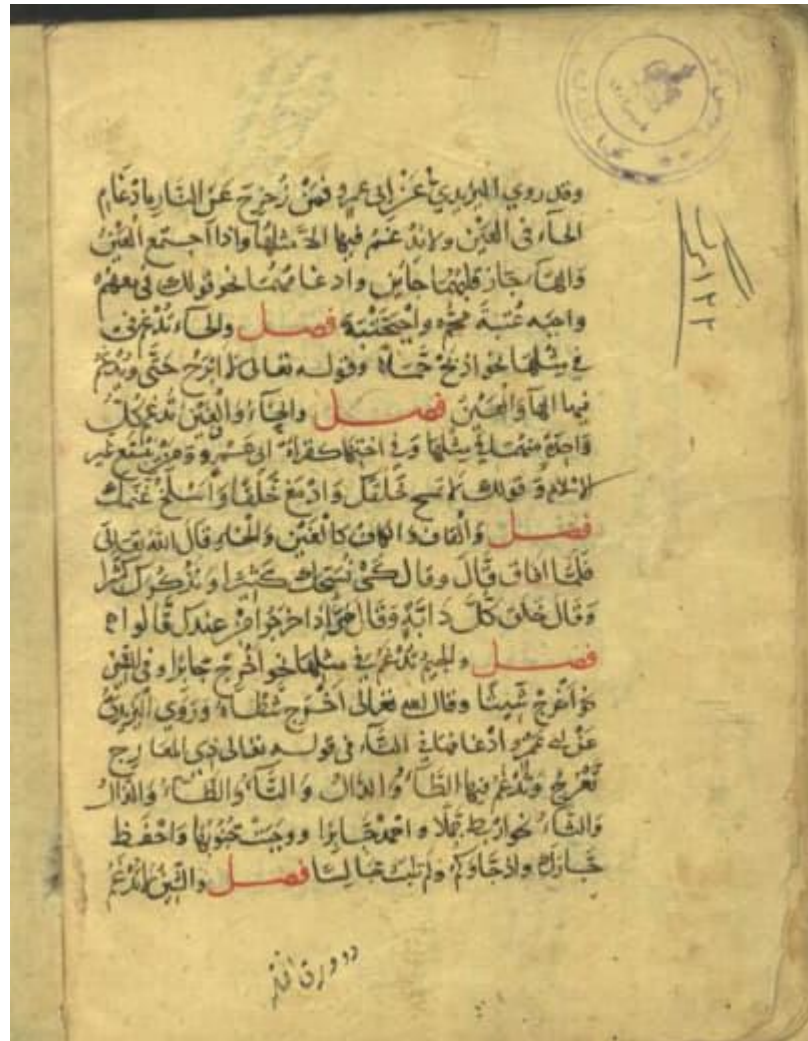 وقد روي اليزيدي عن ابي عمرو فمن زحزح عن النار بادغام
الحاء فى العين ولا تدغم فيها الا مثلها واذا اجتمع العين
والهاء جاز قلبهما حائين وادغامهما نحو قولك في معهم
واجبه عتبة محم واجبحتبة فصل والحاء تدغم في
في مثلها نحو اذبح حملا وقوله تعالى لا ابرح حتى وتدغم
فيها الهآ والعين فصل والخاء والغين تدغم كل
واحدة منهما في مثلها وفي اختها كقراة ابى عمرو ومن يبتغ غير
الاسلام وقولك لا تمسخ خلقك وادمغ خلفا واسلخ غنمك
فصل والقاف والكاف كالغين والخاء قال الله تعالى
فلما افاق قال وقال كى نسبحك كثيرا ونذكرك كثيرا
وقال خلق كل دابة وقال حتى اذا خرجوا من عندك قالوا
فصل والجيم تدغم في مثلها نحو اخرج جابرا وفي الشين
نحو اخرج شيئا وقال الله تعالى اخرج شطاه وروي اليزيدي
عن ابي عمرو ادغامها في التاء فى قوله تعالى ذي المعارج
تعرج وتدغم فيها الطاء والدال والتاء والظاء والذال
والثاء نحو اربط جملا واحمد جابرا ووجبت جنوبها واحفظ
جارك واذ جاوكم ولم يلبث جالسا فصل والشين لا تدغم
١٢٢